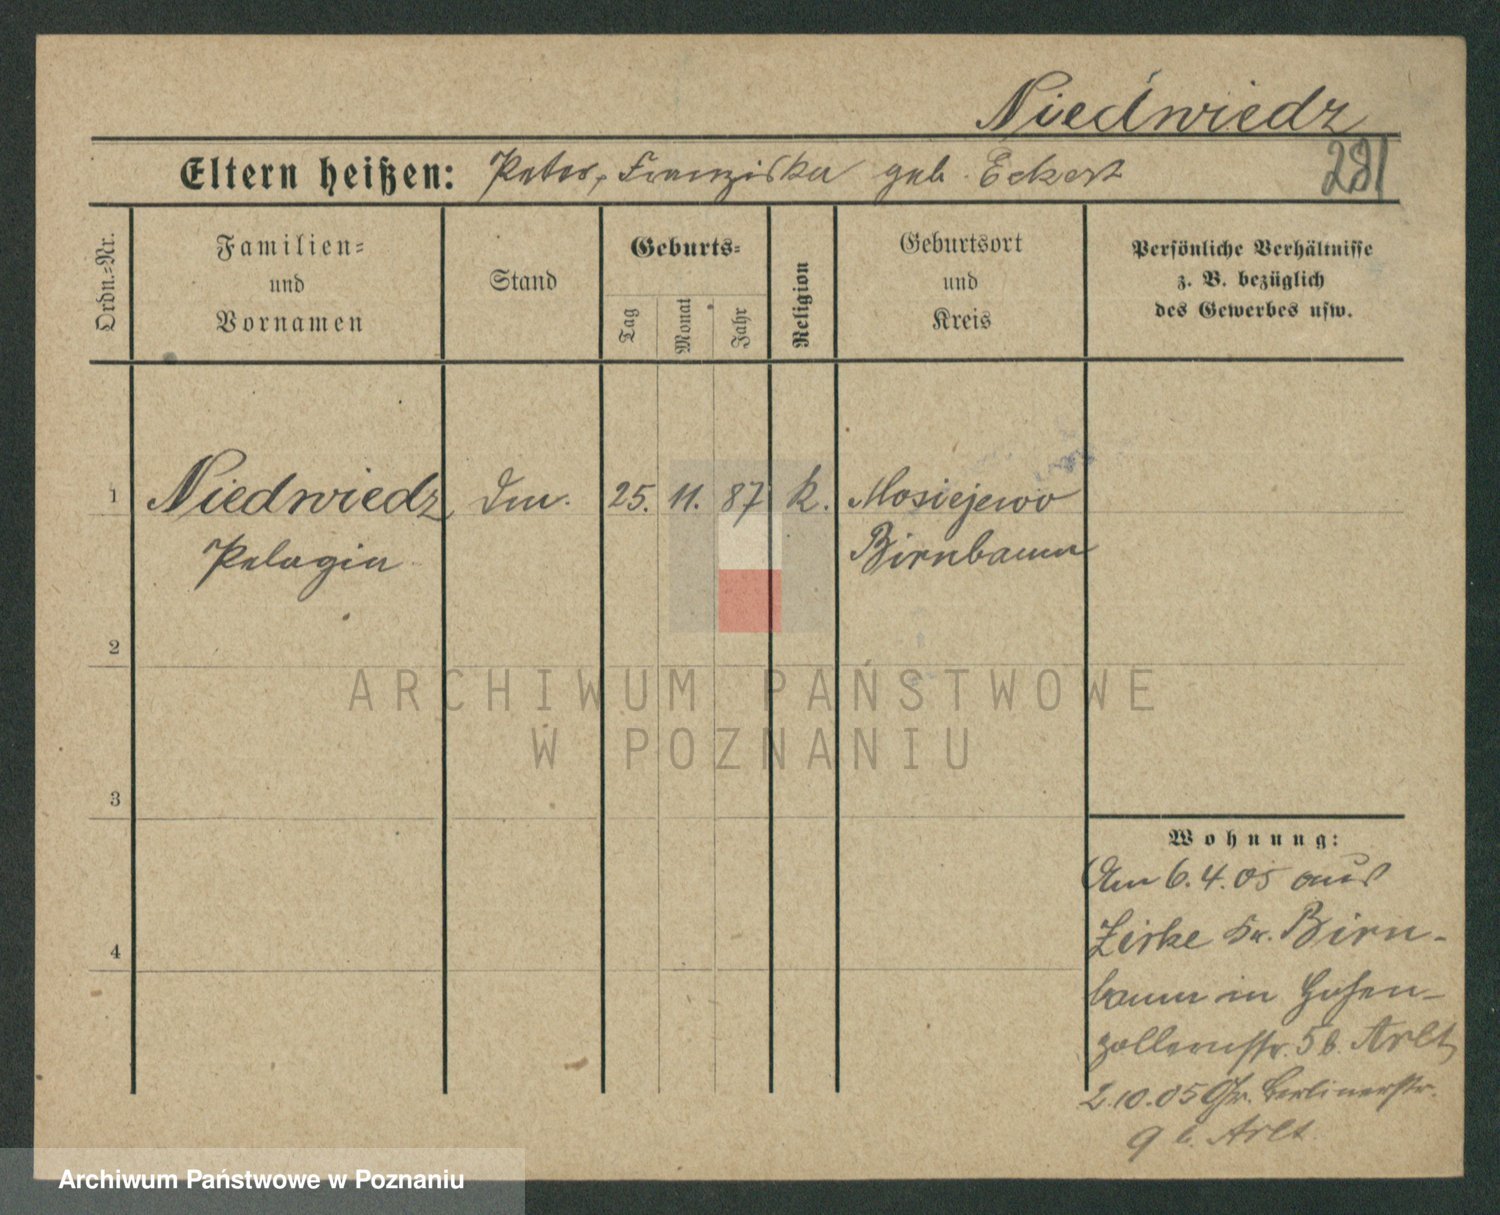 Niedźwiedz
Eltern heißen: Peter, Franziska geb. Eckert
281
Ordn.=Nr.
Familien=
und
Vornamen
Stand
Geburts=
Tag
Monat
Jahr
Religion
Geburtsort
und
Kreis
Persönliche Verhältnisse
z. B. bezüglich
des Gewerbes usw.
1 Niedwiedz 25. 11. 87 k. Mosiejewo
Pelagia Birnbaum
2
3
4
Wohnung:
Am 6.4.05 aus
Zirke Kr. Birn-
baum in Hohen-
zollernstr. 5 b. Arlt
2.10.05 Gr. Berlinerstr.
9 b. Arlt
ARCHIWUM PAŃSTWOWE
W POZNANIU
Archiwum Państwowe w Poznaniu